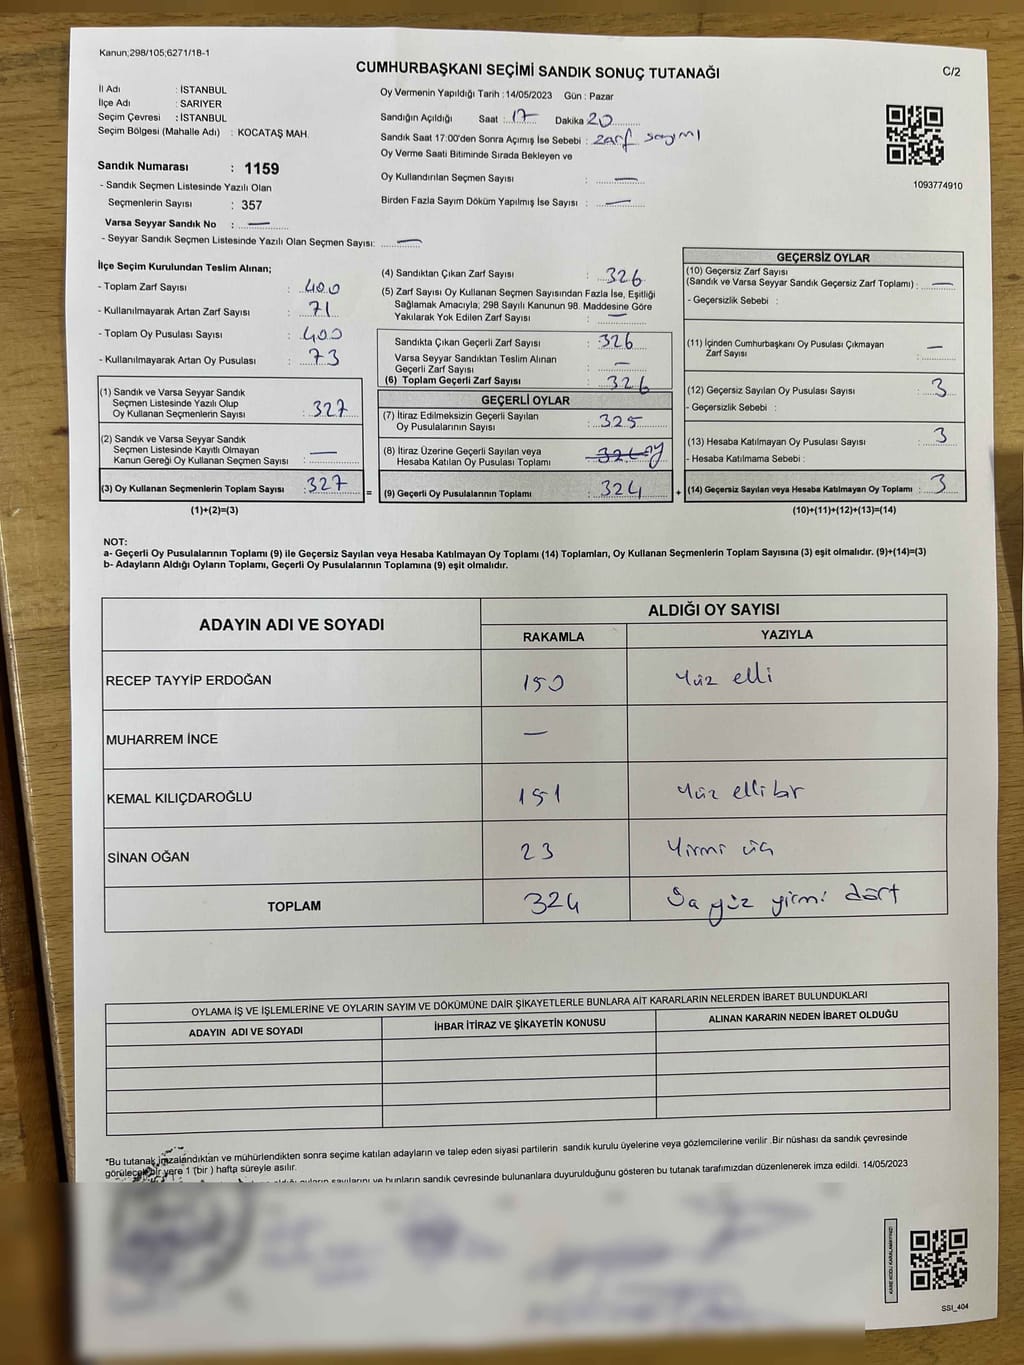 Kanun;298/105;6271/18-1
CUMHURBAŞKANI SEÇİMİ SANDIK SONUÇ TUTANAĞI
C/2
İl Adı : İSTANBUL
İlçe Adı : SARIYER
Seçim Çevresi : İSTANBUL
Seçim Bölgesi (Mahalle Adı) : KOCATAŞ MAH.
Sandık Numarası : 1159
- Sandık Seçmen Listesinde Yazılı Olan
Seçmenlerin Sayısı : 357
Varsa Seyyar Sandık No : —
- Seyyar Sandık Seçmen Listesinde Yazılı Olan Seçmen Sayısı: —
Oy Vermenin Yapıldığı Tarih : 14/05/2023 Gün : Pazar
Sandığın Açıldığı Saat : 17 Dakika 20
Sandık Saat 17:00'den Sonra Açımış İse Sebebi : zarf sayımı
Oy Verme Saati Bitiminde Sırada Bekleyen ve
Oy Kullandırılan Seçmen Sayısı : —
Birden Fazla Sayım Döküm Yapılmış İse Sayısı : —
1093774910
İlçe Seçim Kurulundan Teslim Alınan;
- Toplam Zarf Sayısı : 400
- Kullanılmayarak Artan Zarf Sayısı : 71
- Toplam Oy Pusulası Sayısı : 400
- Kullanılmayarak Artan Oy Pusulası : 73
(1) Sandık ve Varsa Seyyar Sandık
Seçmen Listesinde Yazılı Olup
Oy Kullanan Seçmenlerin Sayısı : 327
(2) Sandık ve Varsa Seyyar Sandık
Seçmen Listesinde Kayıtlı Olmayan
Kanun Gereği Oy Kullanan Seçmen Sayısı : —
(3) Oy Kullanan Seçmenlerin Toplam Sayısı : 327 =
(1)+(2)=(3)
(4) Sandıktan Çıkan Zarf Sayısı : 326
(5) Zarf Sayısı Oy Kullanan Seçmen Sayısından Fazla İse, Eşitliği
Sağlamak Amacıyla; 298 Sayılı Kanunun 98. Maddesine Göre
Yakılarak Yok Edilen Zarf Sayısı : —
Sandıkta Çıkan Geçerli Zarf Sayısı : 326
Varsa Seyyar Sandıktan Teslim Alınan
Geçerli Zarf Sayısı : —
(6) Toplam Geçerli Zarf Sayısı : 326
GEÇERLİ OYLAR
(7) İtiraz Edilmeksizin Geçerli Sayılan
Oy Pusulalarının Sayısı : 325
(8) İtiraz Üzerine Geçerli Sayılan veya
Hesaba Katılan Oy Pusulası Toplamı :
(9) Geçerli Oy Pusulalarının Toplamı : 324 +
GEÇERSİZ OYLAR
(10) Geçersiz Zarf Sayısı
(Sandık ve Varsa Seyyar Sandık Geçersiz Zarf Toplamı) : —
- Geçersizlik Sebebi :
(11) İçinden Cumhurbaşkanı Oy Pusulası Çıkmayan
Zarf Sayısı : —
(12) Geçersiz Sayılan Oy Pusulası Sayısı : 3
- Geçersizlik Sebebi :
(13) Hesaba Katılmayan Oy Pusulası Sayısı : 3
- Hesaba Katılmama Sebebi :
(14) Geçersiz Sayılan veya Hesaba Katılmayan Oy Toplamı : 3
(10)+(11)+(12)+(13)=(14)
NOT:
a- Geçerli Oy Pusulalarının Toplamı (9) ile Geçersiz Sayılan veya Hesaba Katılmayan Oy Toplamı (14) Toplamları, Oy Kullanan Seçmenlerin Toplam Sayısına (3) eşit olmalıdır. (9)+(14)=(3)
b- Adayların Aldığı Oyların Toplamı, Geçerli Oy Pusulalarının Toplamına (9) eşit olmalıdır.
ADAYIN ADI VE SOYADI
ALDIĞI OY SAYISI
RAKAMLA YAZIYLA
RECEP TAYYİP ERDOĞAN 150 Yüz elli
MUHARREM İNCE —
KEMAL KILIÇDAROĞLU 151 Yüz elli bir
SİNAN OĞAN 23 Yirmi üç
TOPLAM 324 yüz yirmi dört
OYLAMA İŞ VE İŞLEMLERİNE VE OYLARIN SAYIM VE DÖKÜMÜNE DAİR ŞİKAYETLERLE BUNLARA AİT KARARLARIN NELERDEN İBARET BULUNDUKLARI
ADAYIN ADI VE SOYADI İHBAR İTİRAZ VE ŞİKAYETİN KONUSU ALINAN KARARIN NEDEN İBARET OLDUĞU
*Bu tutanak imzalandıktan ve mühürlendikten sonra seçime katılan adayların ve talep eden siyasi partilerin sandık kurulu üyelerine veya gözlemcilerine verilir .Bir nüshası da sandık çevresinde
görülecek bir yere 1 (bir ) hafta süreyle asılır.
aldığı oyların sayılarını ve bunların sandık çevresinde bulunanlara duyurulduğunu gösteren bu tutanak tarafımızdan düzenlenerek imza edildi. 14/05/2023
KARE KODU KARALAMAYINIZ!
SSI_404